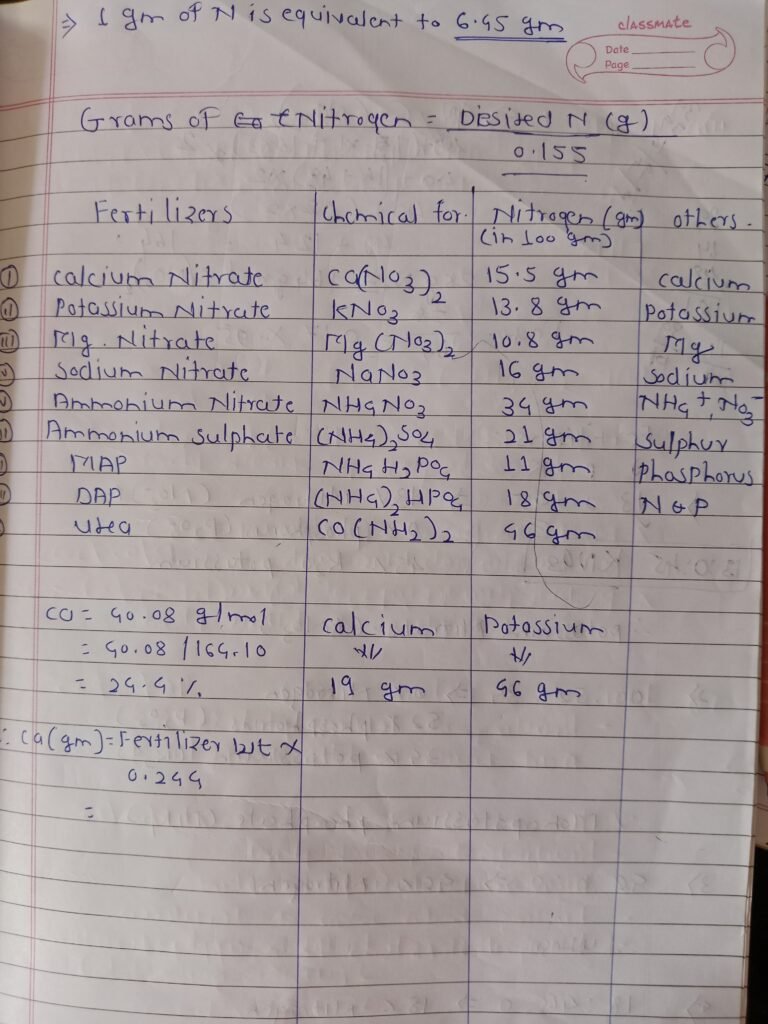 ⇒ 1 gm of N is equivalent to 6.45 gm
classmate
Date
Page
Grams of Nitrogen = Desired N (g)
0.155
Fertilizers Chemical for. Nitrogen (gm) others.
(in 100 gm)
① Calcium Nitrate Ca(NO3)2 15.5 gm Calcium
Potassium Nitrate KNO3 13.8 gm Potassium
Mg. Nitrate Mg(NO3)2 10.8 gm Mg
Sodium Nitrate NaNO3 16 gm Sodium
Ammonium Nitrate NH4NO3 34 gm NH4+, NO3-
Ammonium sulphate (NH4)2SO4 21 gm Sulphur
MAP NH4H2PO4 11 gm Phasphorus
DAP (NH4)2HPO4 18 gm N & P
Urea CO(NH2)2 46 gm
Ca = 40.08 g/mol Calcium Potassium
= 40.08 / 164.10
= 24.4 % 19 gm 46 gm
∴ Ca(gm) = Fertilizer wt ×
0.244
=